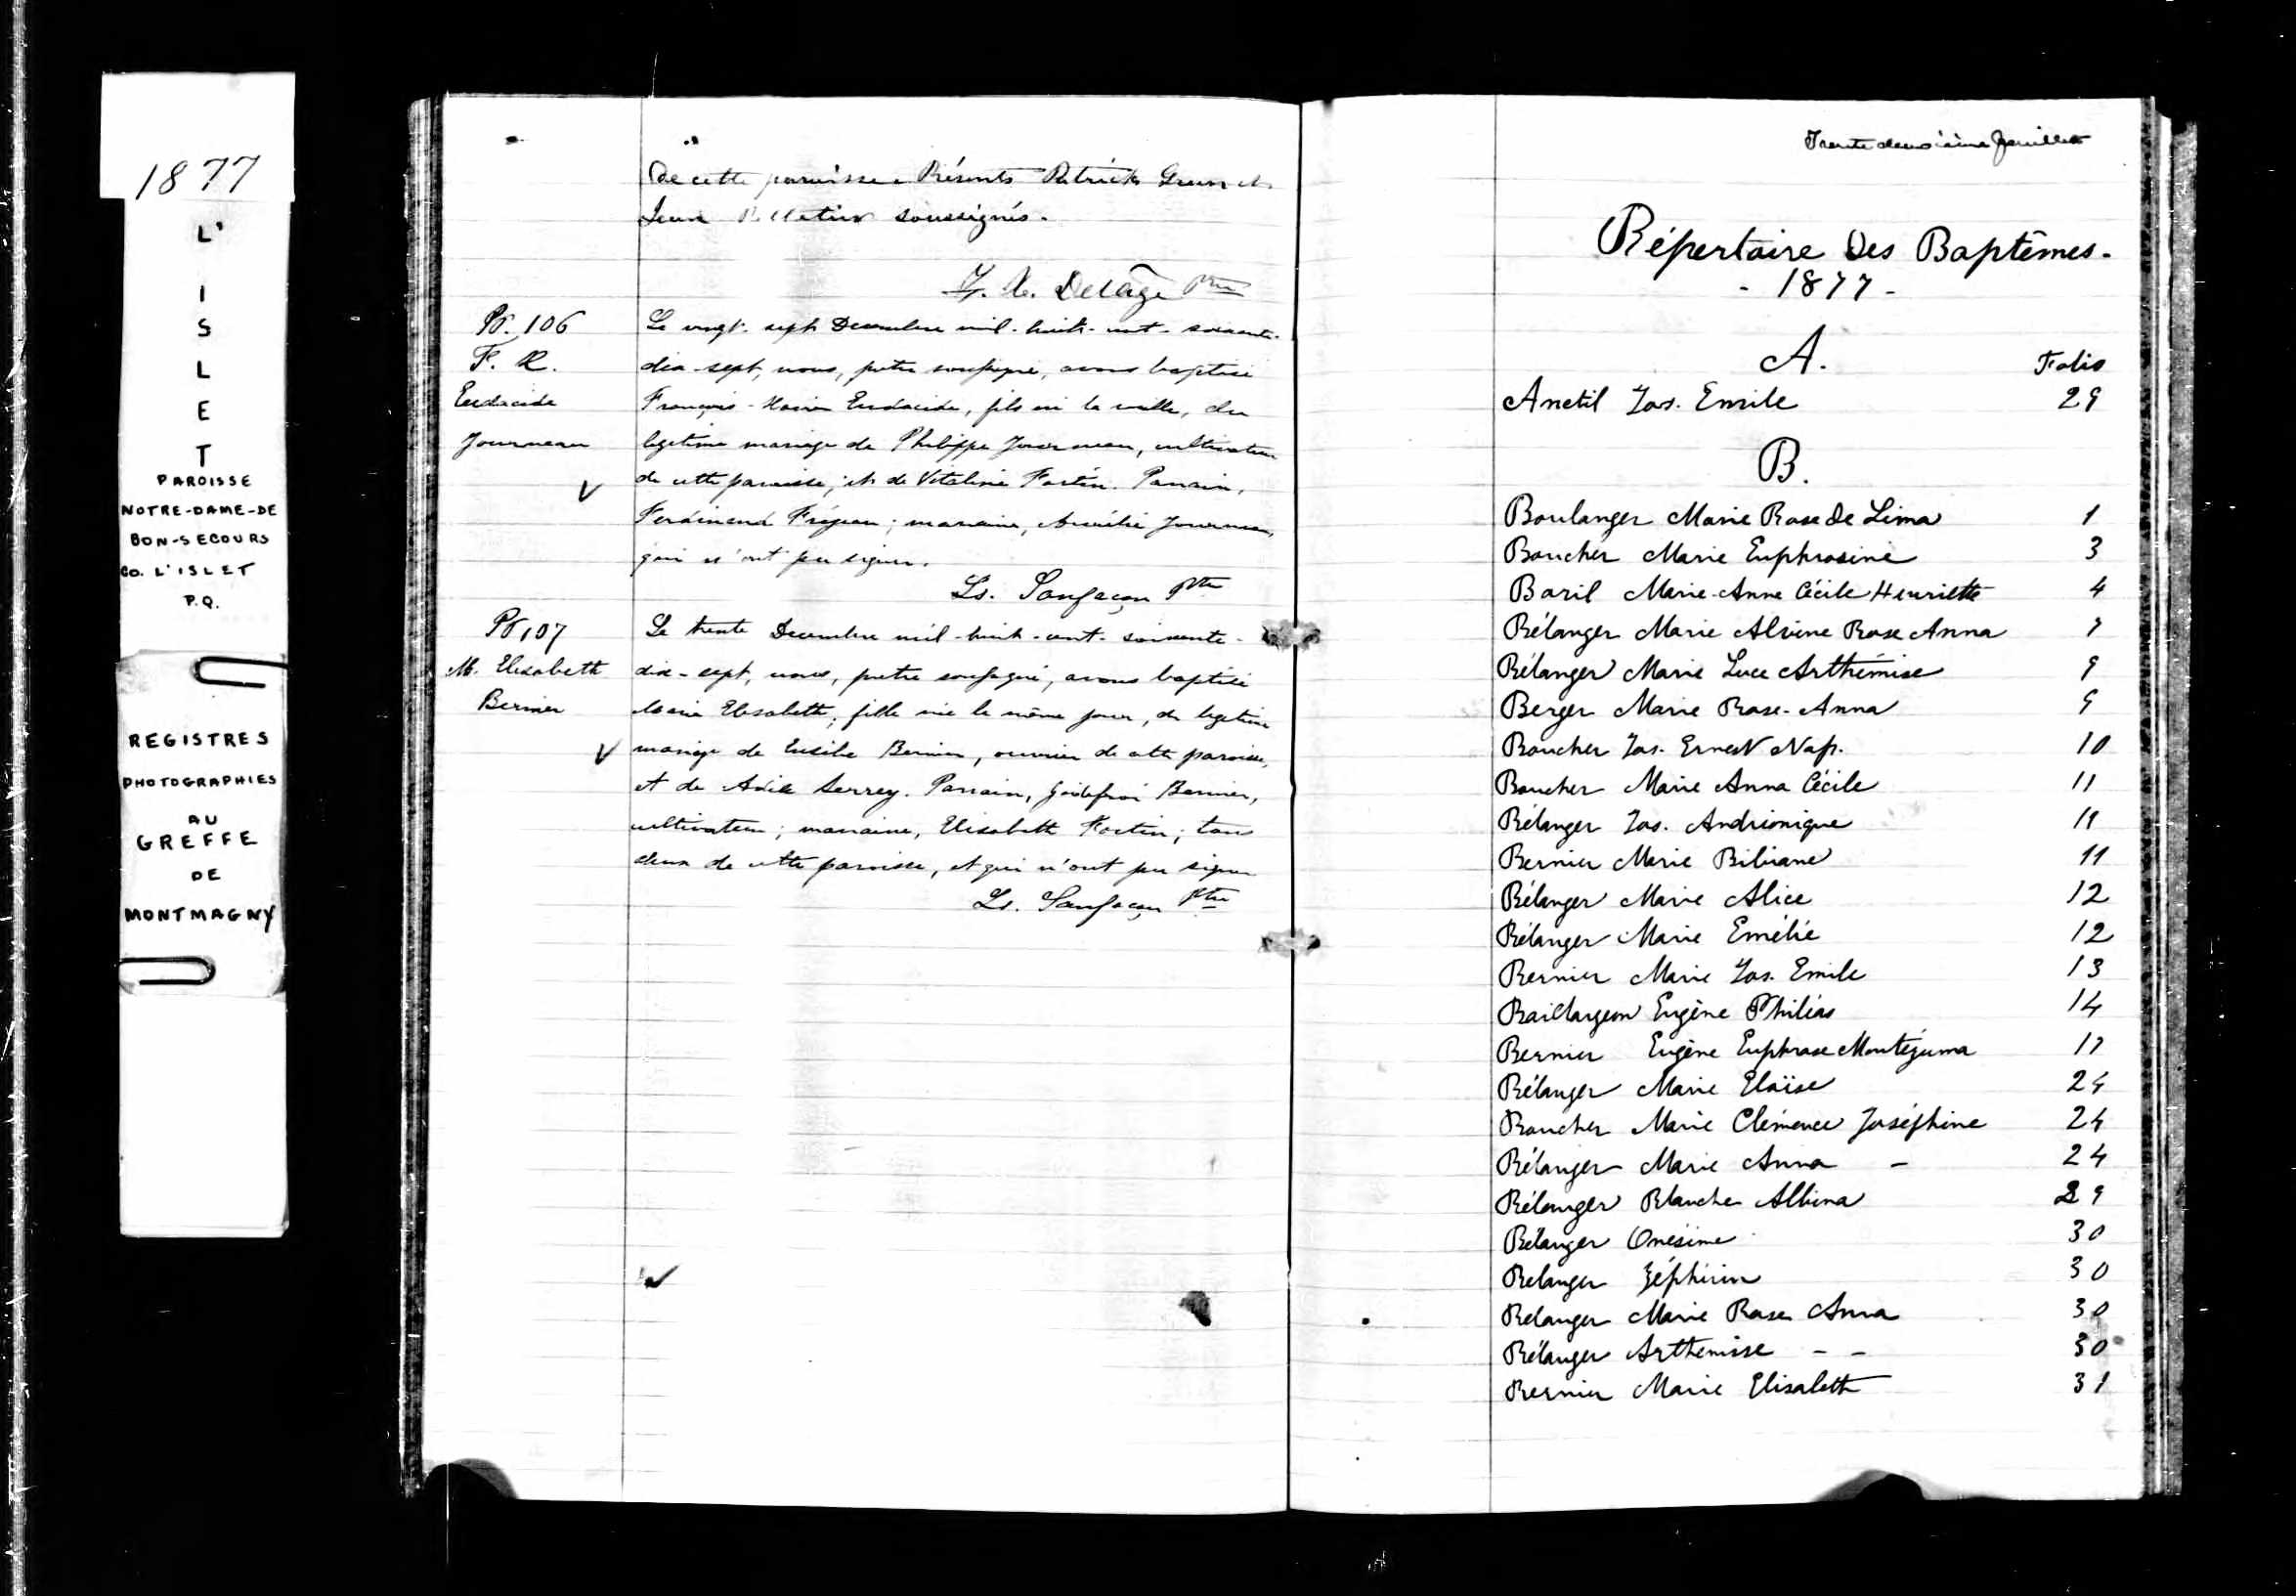 1877
L'
I
S
L
E
T
PAROISSE
NOTRE-DAME-DE
BON-SECOURS
CO. L'ISLET
P.Q.
REGISTRES
PHOTOGRAPHIES
AU
GREFFE
DE
MONTMAGNY
de cette paroisse. Présents Patrick
soussignés.
F. X. Delâge Ptre
B. 106
F. X.
Eudacide
Journeau
Le vingt-sept Decembre mil-huit-cent-soixante-
dix-sept, nous, prêtre soussigné, avons baptisé
François-Xavier Eudacide, fils né la veille, du
légitime mariage de Philippe Journeau, cultivateur
de cette paroisse, et de Vitaline Fortin. Parrain,
Ferdinand; marraine, Aurélie Journeau,
qui n'ont pu signer.
Ls. Sanfaçon Ptre
B. 107
M. Elisabeth
Bernier
Le trente Decembre mil-huit-cent-soixante-
dix-sept, nous, prêtre soussigné, avons baptisé
Marie Elisabeth, fille née le même jour, du légitime
mariage de Eusèbe Bernier, ouvrier de cette paroisse,
et de Adèle Serrey. Parrain, Godefroi Bernier,
cultivateur; marraine, Elisabeth Fortin; tous
deux de cette paroisse, et qui n'ont pu signer
Ls. Sanfaçon Ptre
Trente deuxième feuillet
Répertoire des Baptêmes.
- 1877 -
A. Folio
Anctil Jos. Emile 29
B.
Boulanger Marie Rose de Lima 1
Boucher Marie Euphrosine 3
Baril Marie-Anne Cécile Henriette 4
Bélanger Marie Alvine Rose Anna 7
Bélanger Marie Luce Arthémise 9
Berger Marie Rose-Anna 9
Boucher Jos. Ernest Nap. 10
Boucher Marie Anna Cécile 11
Bélanger Jos. Andrionique 11
Bernier Marie Bibiane 11
Bélanger Marie Alice 12
Bélanger Marie Emélie 12
Bernier Marie Jos. Emile 13
Baillargeon Eugène Philéas 14
Bernier Eugène Euphrase Montézuma 17
Bélanger Marie Eloïse 24
Boucher Marie Clémence Joséphine 24
Bélanger Marie Anna - 24
Bélanger Blanche Albina 29
Bélanger Onésime 30
Belanger Zéphirin 30
Belanger Marie Rose Anna 30
Bélanger Arthemisse - - 30
Bernier Marie Elisabeth 31